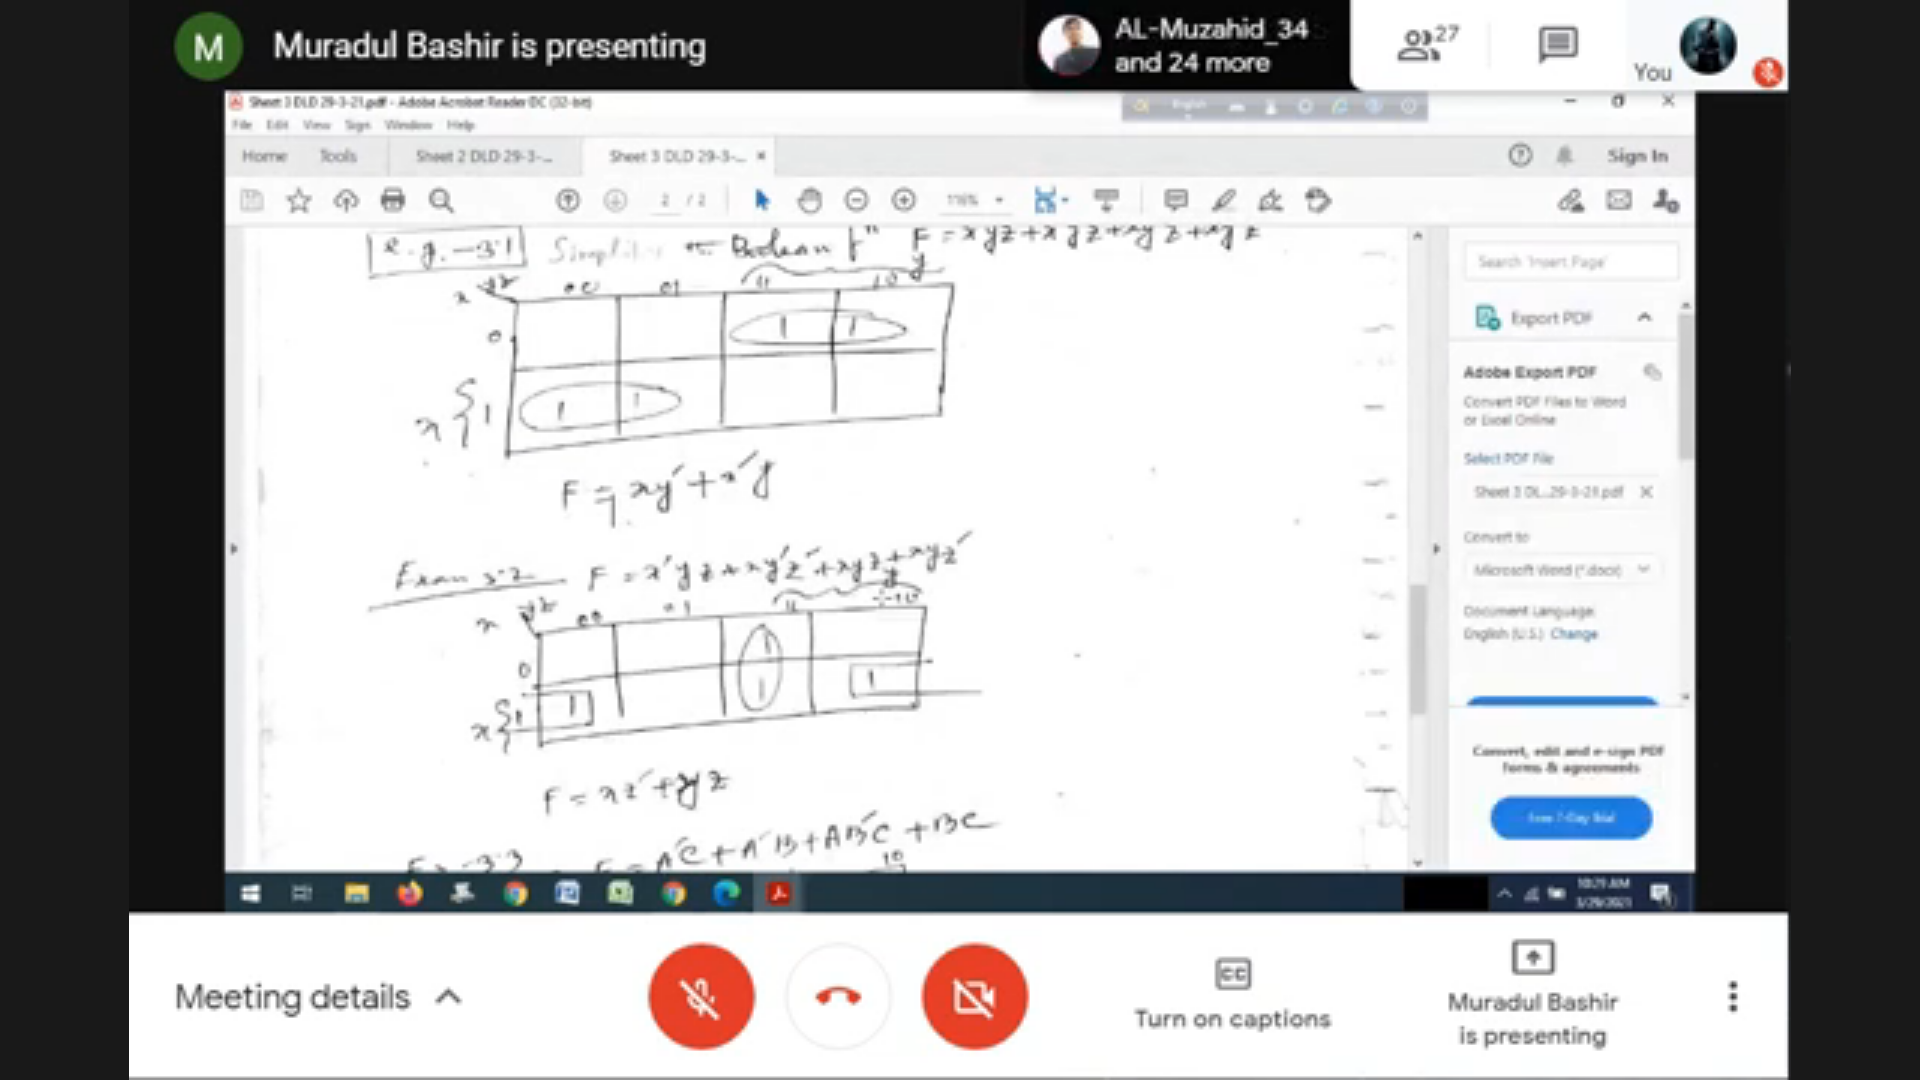 M Muradul Bashir is presenting
AL-Muzahid_34
and 24 more
27
You
Sheet 3 DLD 29-3-21.pdf - Adobe Acrobat Reader DC (32-bit)
File Edit View Sign Window Help
Home Tools Sheet 2 DLD 29-3-... Sheet 3 DLD 29-3-... ×
Sign In
2 / 2
116%
e.g.-3.1 Boolean F = xyz + xyz + xyz + xyz
y
x yz 00 01 11 10
0 1 1
x { 1 1 1
F = xy′ + x′y
Exam 3.2 F = x′yz + xy′z′ + xyz + xyz′
y
x yz 00 01 11 10
0 1
x { 1 1 1 1
F = xz′ + yz
Ex-3.3 F = A′C + A′B + AB′C + BC
10
Search 'Insert Page'
Export PDF
Adobe Export PDF
Convert PDF Files to Word
or Excel Online
Select PDF File
Sheet 3 DL...29-3-21.pdf ×
Convert to
Microsoft Word (*.docx)
Document Language:
English (U.S.) Change
Convert, edit and e-sign PDF
forms & agreements
Free 7-Day Trial
10:29 AM
3/29/2021
Meeting details
CC
Turn on captions
Muradul Bashir
is presenting